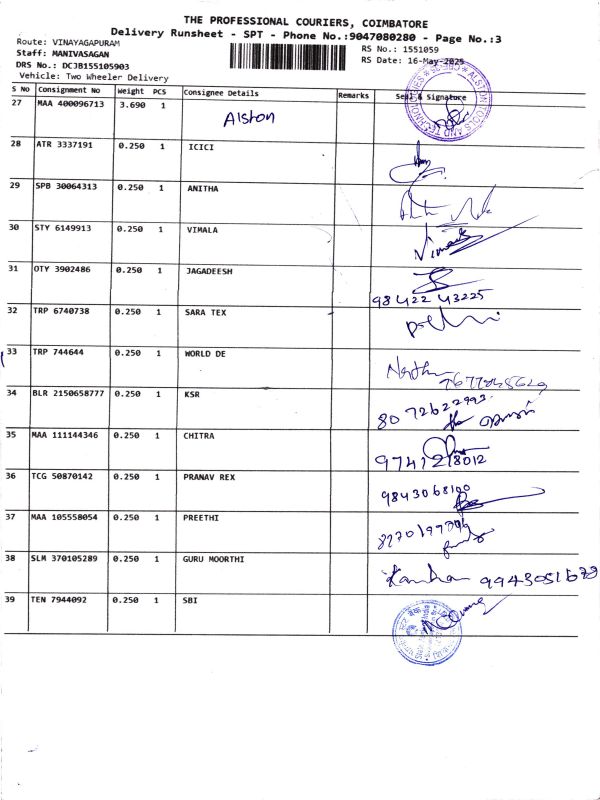 THE PROFESSIONAL COURIERS, COIMBATORE
Delivery Runsheet - SPT - Phone No.:9047080280 - Page No.:3
Route: VINAYAGAPURAM
Staff: MANIVASAGAN
DRS No.: DCJB155105903
Vehicle: Two Wheeler Delivery
RS No.: 1551059
RS Date: 16-May-2025
S No Consignment No Weight PCS Consignee Details Remarks Seal & Signature
27 MAA 400096713 3.690 1 Alston
ALSTON TOOLS AND TECHNOLOGIES
28 ATR 3337191 0.250 1 ICICI
29 SPB 30064313 0.250 1 ANITHA
30 STY 6149913 0.250 1 VIMALA
31 OTY 3902486 0.250 1 JAGADEESH
98422 43225
32 TRP 6740738 0.250 1 SARA TEX
33 TRP 744644 0.250 1 WORLD DE
34 BLR 2150658777 0.250 1 KSR
80 72622993
35 MAA 111144346 0.250 1 CHITRA
9741218012
36 TCG 50870142 0.250 1 PRANAV REX
9843068100
37 MAA 105558054 0.250 1 PREETHI
38 SLM 370105289 0.250 1 GURU MOORTHI
39 TEN 7944092 0.250 1 SBI